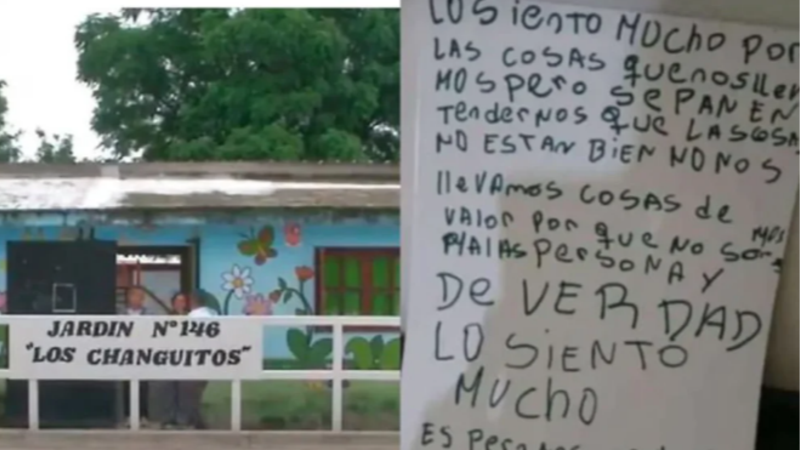 JARDIN N°146
"LOS CHANGUITOS"
LO SIENTO MUCHO POR
LAS COSAS QUE NOS LLEV
MOS PERO SEPAN EN
TENDERNOS QUE LAS COSA
NO ESTAN BIEN NO NOS
LLEVAMOS COSAS DE
VALOR POR QUE NO SOMOS
MALAS PERSONA Y
DE VERDAD
LO SIENTO
MUCHO